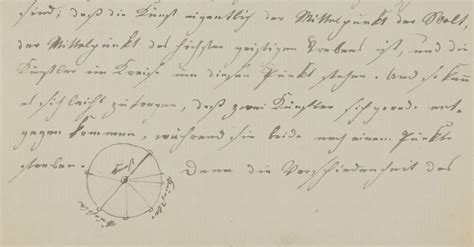 sind, daß die Kunst eigentlich der Mittelpunkt der Welt,
der Mittelpunkt des höchsten geistigen Strebens ist, und die
Künstler im Kreise um diesen Punkt stehen. Und so kann
es sich leicht zutragen, daß zwei Künstler sich gerade ent-
gegen kommen, während sie beide nach einem Punkte
streben.
Künstler
Künstler
Denn die Verschiedenheit des